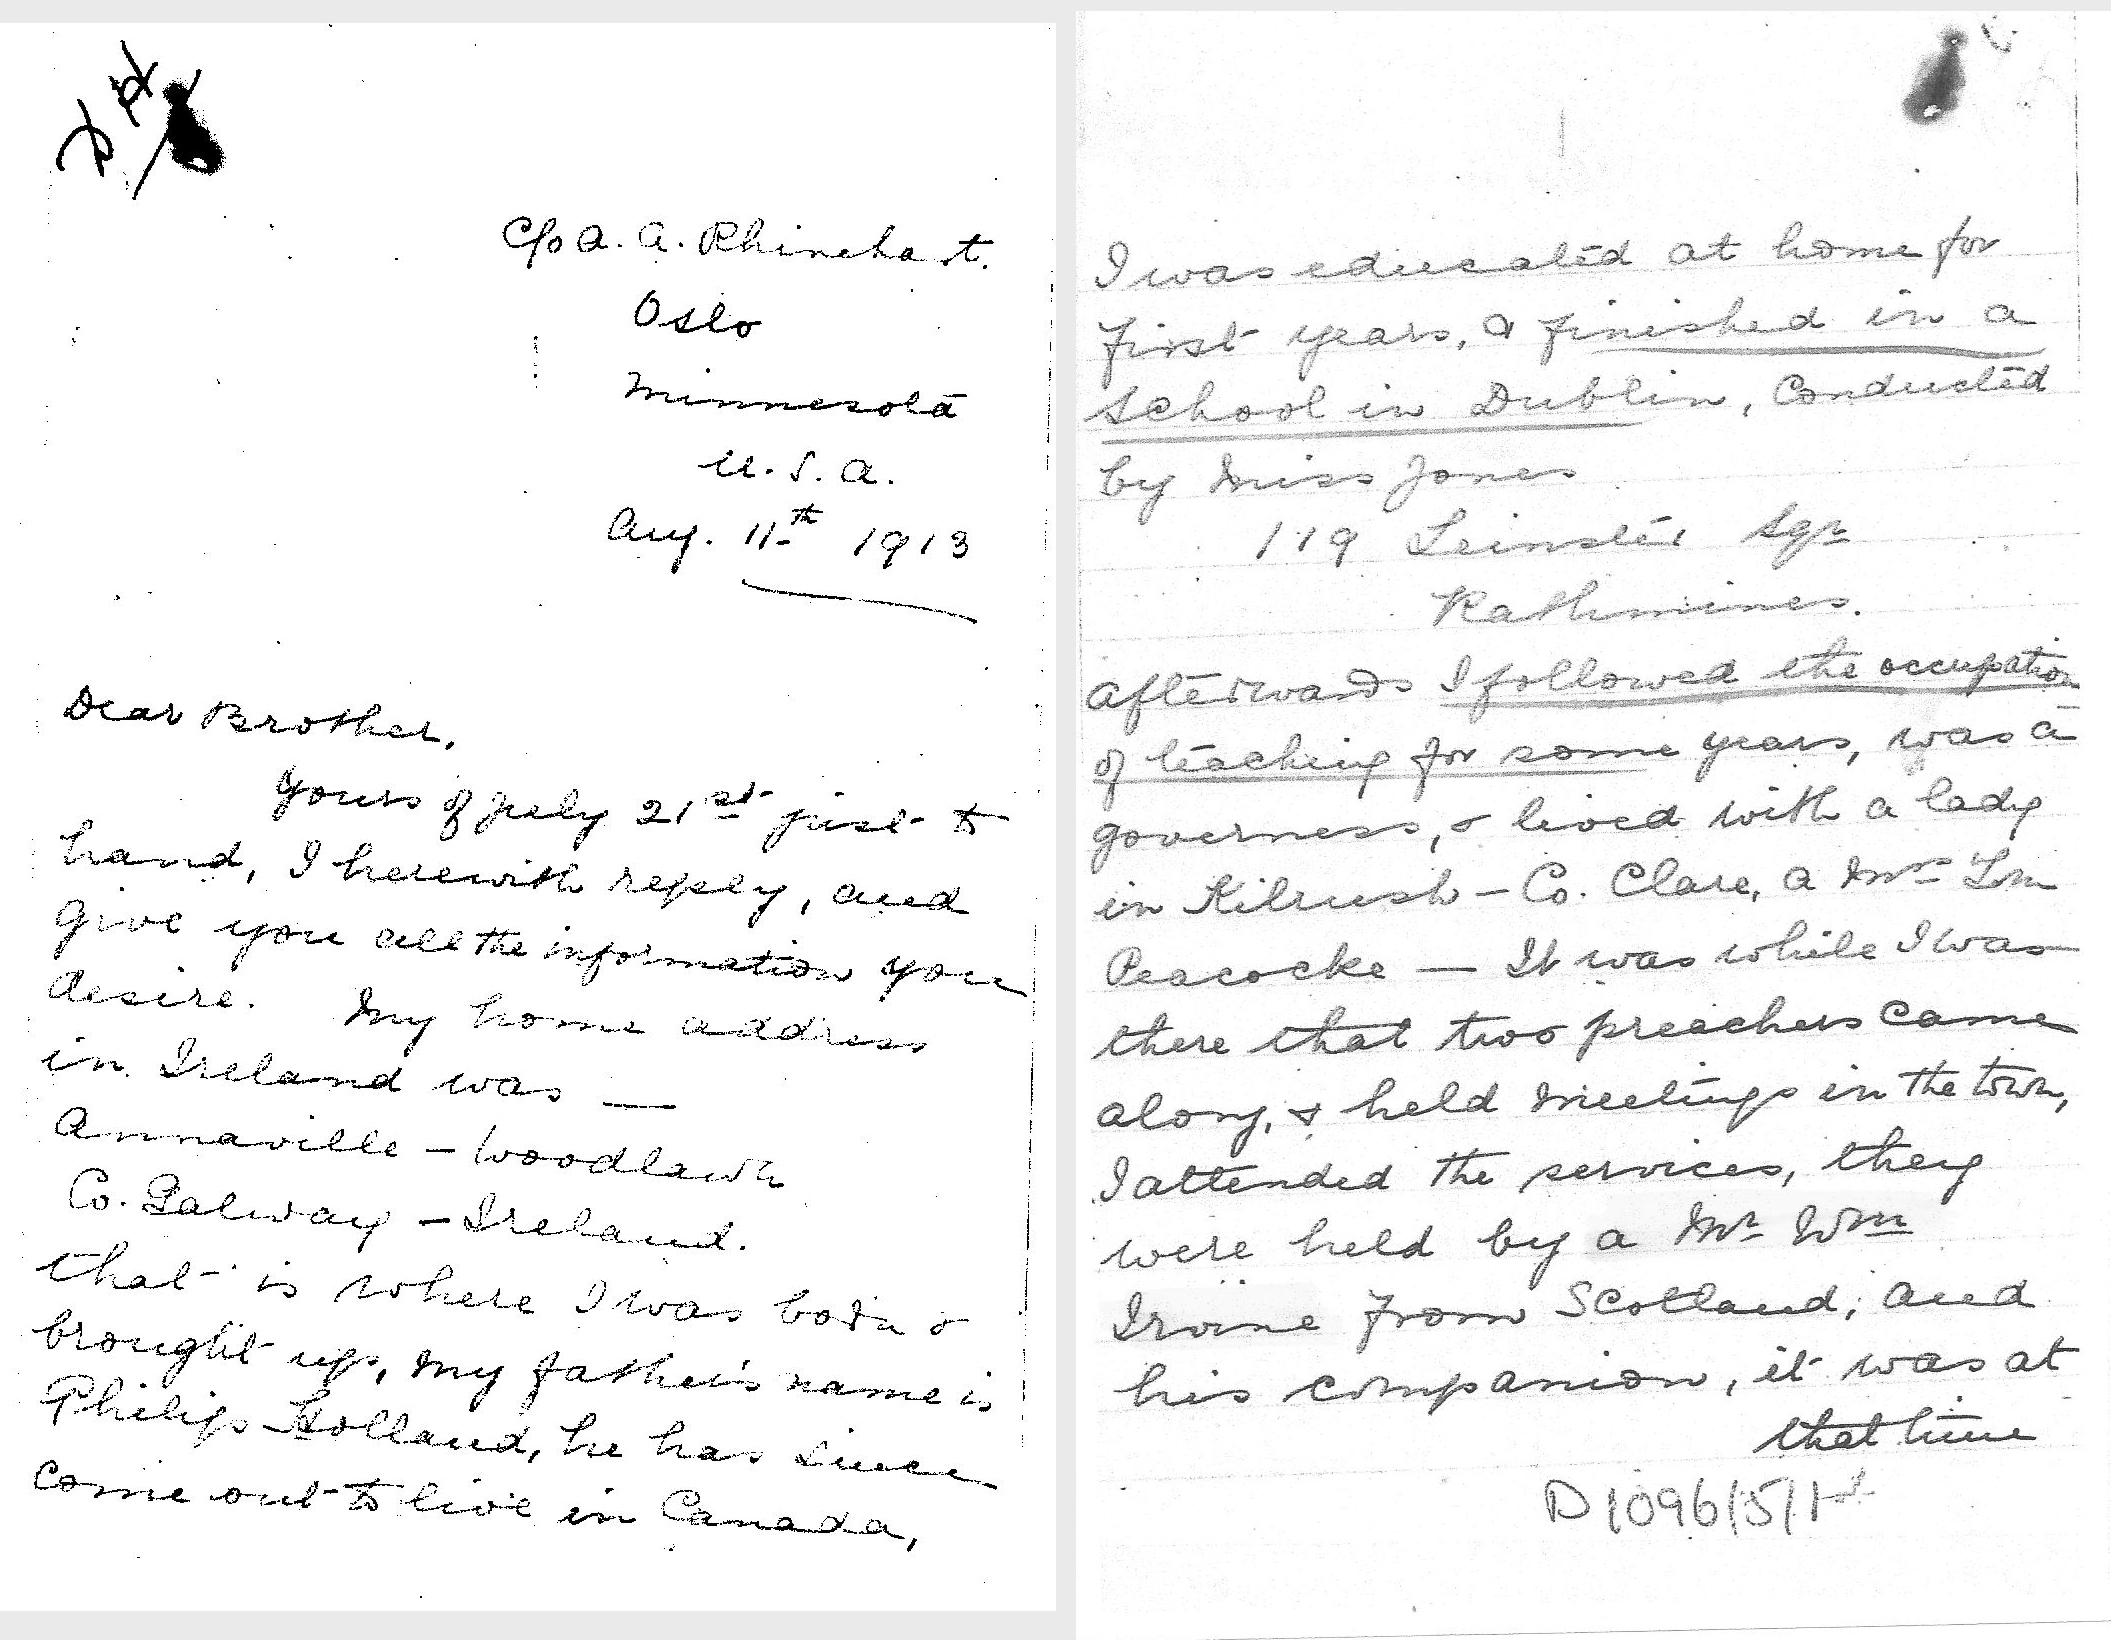 C/o A. A. Rhinehart.
Oslo
Minnesota
U. S. A.
Aug. 11th 1913
Dear Brother,
Yours of July 21st just to
hand, I herewith reply, and
give you all the information you
desire. My home address
in Ireland was —
Annaville – Woodlawn
Co. Galway – Ireland.
that is where I was born &
brought up, my father's name is
Philip Holland, he has since
come out to live in Canada,
I was educated at home for
first years, & finished in a
school in Dublin, Conducted
by Miss Jones
119 Leinster Sqr
Rathmines.
afterwards I followed the occupation
of teaching for some years, was a
governess, & lived with a lady
in Kilrush – Co. Clare, a Mrs
Peacocke — It was while I was
there that two preachers came
along, & held meetings in the town,
I attended the services, they
were held by a Mr Wm
Irvine from Scotland; and
his companion, it was at
that time
D1096/5/1